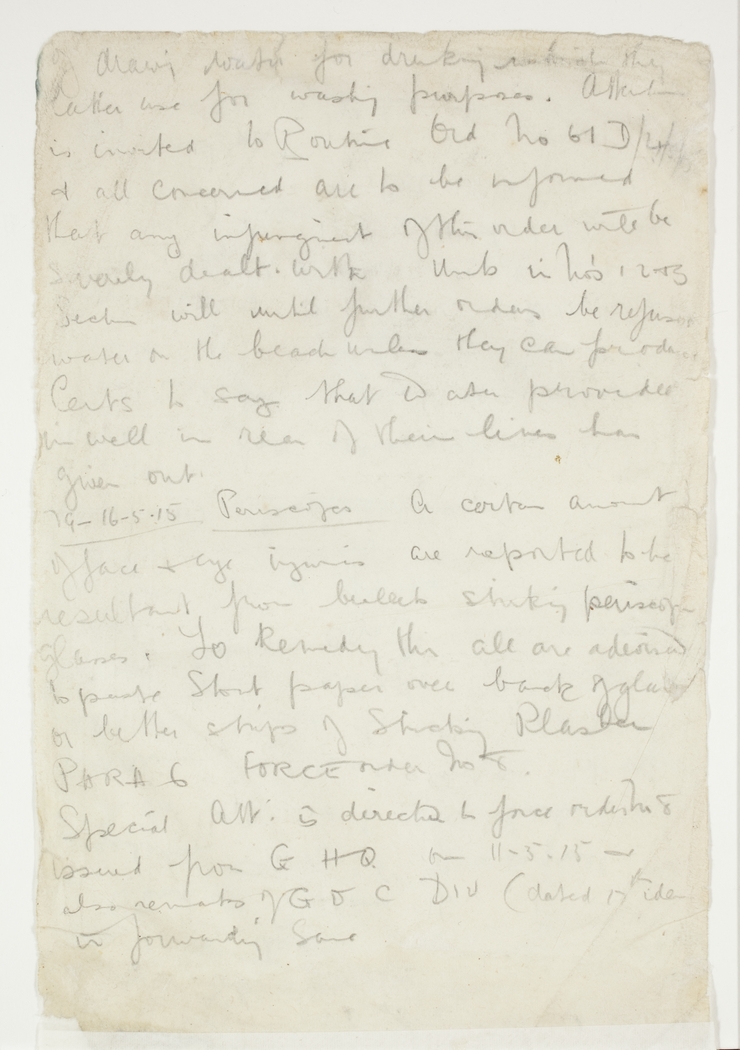 drawing water for drinking which they
latter use for washing purposes. Attention
is invited to Routine Ord No 61 D/
& all concerned are to be informed
that any infringment of this order will be
severely dealt with Units in No's 1 2 & 3
Sectn will until further orders be refused
water on the beach unless they can produce
Certs to say that Water provided
in well in rear of their lines has
given out.
79 - 16-5-15 Periscopes A certain amount
of face & eye injuries are reported to be
resultant from bullets striking periscope
glasses. To Remedy this all are advised
to paste Stout paper over back of glass
or better strips of Sticking Plaster
PARA 6 FORCE order No 8.
Special Att: is directed to force order No 8
issued from G H Q on 11-5-15 -
also remarks of G O C DIV (dated 17th idem
in forwarding Same